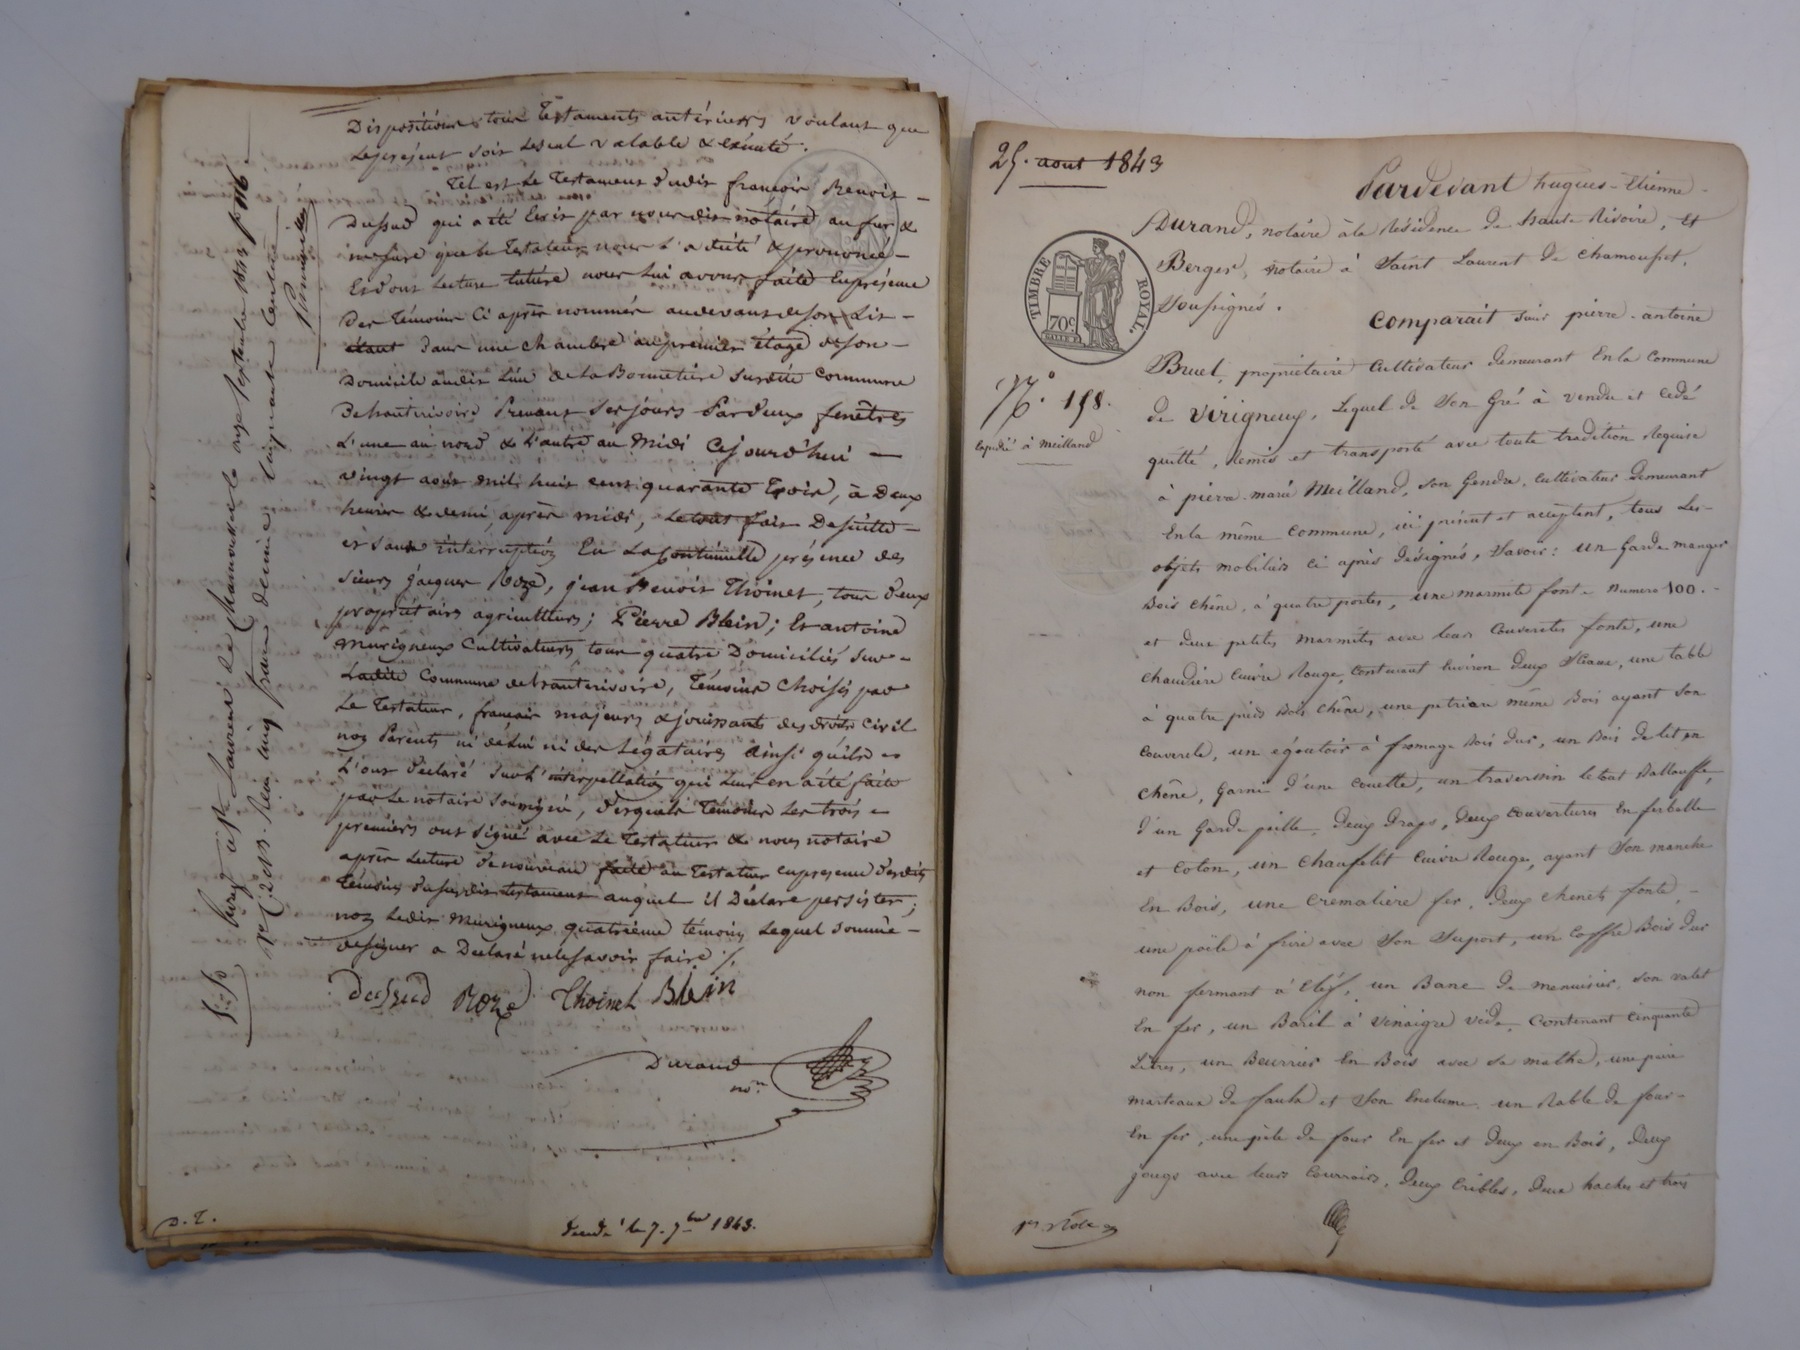 Dispositions tous Testaments antérieurs voulant que
le present soit le seul valable & exécuté.
Tel est le Testament dudit françois Benoit
Dussud qui a été Ecrit par nous dit notaire au fur &
mesure que le Testateur nous l'a dicté & prononcé
Et dont Lecture entière nous lui avons faite En présence
Des Témoins Ci après nommés au devant de son Lit
étant dans une chambre au premier étage de son
Domicile audit Lieu de la Bonnetière susdite Commune
De hauterivoire Prenant Ses jours Par deux fenêtres
L'une au nord & L'autre au Midi Cejourd'hui
vingt août mil huit cent quarante trois, à Deux
heures & demi après midi, Le tout fait De suitte
et sans interruption En La Continuelle présence des
Sieurs Jacques Roze, Jean Benoit Thoinet, tous deux
propriétaires agriculteurs; Pierre Blein; Et antoine
Murigneux Cultivateurs, tous quatre Domiciliés sur
Ladite Commune de hauterivoire, Témoins Choisis par
Le Testateur, français majeurs & jouissant des droits Civil
non Parents ni de lui ni des Légataires Ainsi qu'ils
L'ont déclaré sur L'interpellation qui Leur en a été faite
par Le notaire soussigné, desquels Témoins Les trois
premiers ont signé avec Le Testateur & nous notaire
après Lecture de nouveau faite au Testateur en présence desdits
Témoins du susdit testament auquel il Déclare persister;
non Ledit Murigneux quatrième témoin Lequel sommé
de signer a Déclaré ne le savoir faire /.
dussud Roze Thoinet Blein
Durand
nore
D. T.
décédé le 7. 7bre 1843.
Enregt à St. Laurent de Chamousset le onze septembre 1843 fo 116
Ro C. 2 et 3. Reçu cinq francs décime cinquante centimes
25. aout 1843
Pardevant hugues-Etienne
Durand, notaire à la Résidence de haute Rivoire, Et
Berger, notaire à Saint Laurent de Chamousset,
Soussignés.
TIMBRE ROYAL.
70c
No. 158.
Expédié à Meilland
Comparait Sieur pierre-antoine
Bruel, propriétaire Cultivateur Demeurant En la Commune
de Virigneux, Lequel de Son Gré à vendu et Cedé
quitté, Remis et transporté avec toute tradition Requise
à pierre-marie Meilland, son Gendre, Cultivateur Demeurant
En la même Commune, ici présent et acceptant, tous Les
objets mobiliers ci après désignés, Savoir: un Garde manger
Bois chêne, à quatre portes, une marmite fonte Numero 100.
et deux petites marmites avec leurs Couvercles fonte, une
Chaudière Cuivre Rouge, Contenant Environ deux Seaux, une table
à quatre pieds Bois Chêne, une petriere même Bois ayant Son
Couvercle, un égoutoir à fromage Bois dur, un Bois de lit en
Chêne, Garni d'une Couette, un traversin le tout Ballouffe,
d'un Garde paille, Deux Draps, Deux Couvertures En ferbelle
et Coton, un Chaufelit Cuivre Rouge, ayant Son manche
En Bois, une Cremaliere fer, Deux Chenets fonte,
une poële à frire avec Son Suport, un Coffre Bois dur
non fermant à Clef, un Banc de menuisier, son valet
En fer, un Baril à vinaigre vide, Contenant Cinquante
Litres, un Beurrier En Bois avec sa mathe, une paire
marteaux de faulx et Son Enclume, un Rable de four
En fer, une pèle de four En fer et deux en Bois, Deux
jougs avec leurs Courroies, Deux Cribles, deux haches et trois
1er Rôle